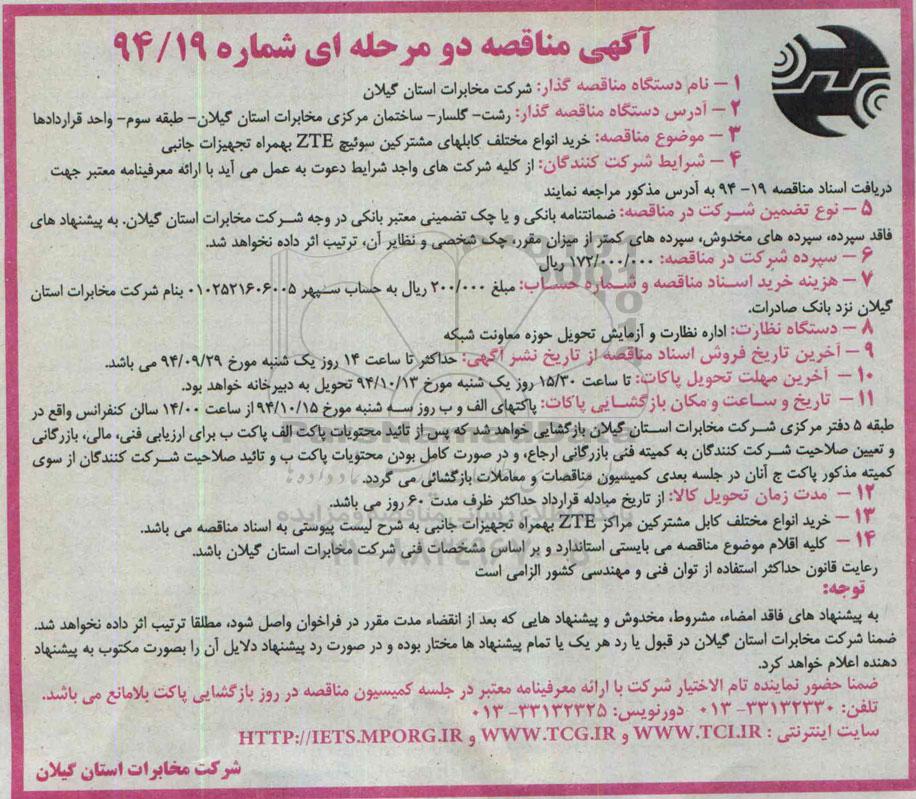 آگهی مناقصه دو مرحله ای شماره ۹۴/۱۹
۱ – نام دستگاه مناقصه گذار: شرکت مخابرات استان گیلان
۲ – آدرس دستگاه مناقصه گذار: رشت- گلسار- ساختمان مرکزی مخابرات استان گیلان- طبقه سوم- واحد قراردادها
۳ – موضوع مناقصه: خرید انواع مختلف کابلهای مشترکین سوئیچ ZTE بهمراه تجهیزات جانبی
۴ – شرایط شرکت کنندگان: از کلیه شرکت های واجد شرایط دعوت به عمل می آید با ارائه معرفینامه معتبر جهت
دریافت اسناد مناقصه ۱۹- ۹۴ به آدرس مذکور مراجعه نمایند
۵ – نوع تضمین شرکت در مناقصه: ضمانتنامه بانکی و یا چک تضمینی معتبر بانکی در وجه شرکت مخابرات استان گیلان. به پیشنهاد های
فاقد سپرده، سپرده های مخدوش، سپرده های کمتر از میزان مقرر، چک شخصی و نظایر آن، ترتیب اثر داده نخواهد شد.
۶ – سپرده شرکت در مناقصه: ۱۷۲/۰۰۰/۰۰۰ ریال
۷ – هزینه خرید اسناد مناقصه و شماره حساب: مبلغ ۲۰۰/۰۰۰ ریال به حساب سپهر ۰۱۰۲۵۲۱۶۰۶۰۰۵ بنام شرکت مخابرات استان
گیلان نزد بانک صادرات.
۸ – دستگاه نظارت: اداره نظارت و آزمایش تحویل حوزه معاونت شبکه
۹ – آخرین تاریخ فروش اسناد مناقصه از تاریخ نشر آگهی: حداکثر تا ساعت ۱۴ روز یک شنبه مورخ ۹۴/۰۹/۲۹ می باشد.
۱۰ – آخرین مهلت تحویل پاکات: تا ساعت ۱۵/۳۰ روز یک شنبه مورخ ۹۴/۱۰/۱۳ تحویل به دبیرخانه خواهد بود.
۱۱ – تاریخ و ساعت و مکان بازگشایی پاکات: پاکتهای الف و ب روز سه شنبه مورخ ۹۴/۱۰/۱۵ از ساعت ۱۴/۰۰ سالن کنفرانس واقع در
طبقه ۵ دفتر مرکزی شرکت مخابرات استان گیلان بازگشایی خواهد شد که پس از تائید محتویات پاکت الف پاکت ب برای ارزیابی فنی، مالی، بازرگانی
و تعیین صلاحیت شرکت کنندگان به کمیته فنی بازرگانی ارجاع، و در صورت کامل بودن محتویات پاکت ب و تائید صلاحیت شرکت کنندگان از سوی
کمیته مذکور پاکت ج آنان در جلسه بعدی کمیسیون مناقصات و معاملات بازگشائی می گردد.
۱۲ – مدت زمان تحویل کالا: از تاریخ مبادله قرارداد حداکثر ظرف مدت ۶۰ روز می باشد.
۱۳ – خرید انواع مختلف کابل مشترکین مراکز ZTE بهمراه تجهیزات جانبی به شرح لیست پیوستی به اسناد مناقصه می باشد.
۱۴ – کلیه اقلام موضوع مناقصه می بایستی استاندارد و بر اساس مشخصات فنی شرکت مخابرات استان گیلان باشد.
رعایت قانون حداکثر استفاده از توان فنی و مهندسی کشور الزامی است
توجه:
به پیشنهاد های فاقد امضاء، مشروط، مخدوش و پیشنهاد هایی که بعد از انقضاء مدت مقرر در فراخوان واصل شود، مطلقا ترتیب اثر داده نخواهد شد.
ضمنا شرکت مخابرات استان گیلان در قبول یا رد هر یک یا تمام پیشنهاد ها مختار بوده و در صورت رد پیشنهاد دلایل آن را بصورت مکتوب به پیشنهاد
دهنده اعلام خواهد کرد.
ضمنا حضور نماینده تام الاختیار شرکت با ارائه معرفینامه معتبر در جلسه کمیسیون مناقصه در روز بازگشایی پاکت بلامانع می باشد.
تلفن: ۳۳۱۳۲۳۳۰- ۰۱۳ دورنویس: ۳۳۱۳۲۳۲۵- ۰۱۳
سایت اینترنتی : WWW.TCI.IR و WWW.TCG.IR و HTTP://IETS.MPORG.IR
شرکت مخابرات استان گیلان